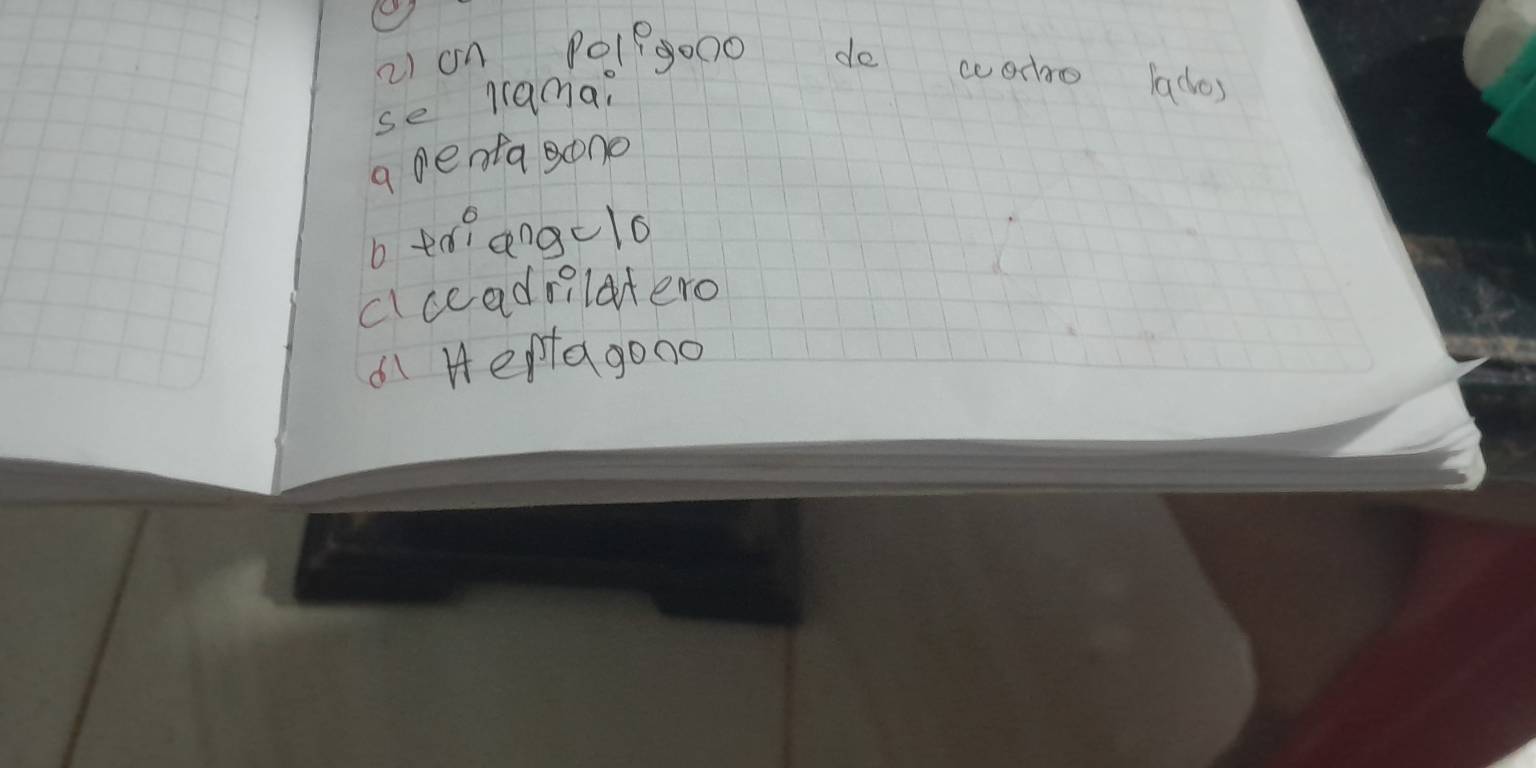 2) un polígono de cuadro lados
se llama:
a pentagono
b triangulo
c) cuadrilatero
d) Heptagono